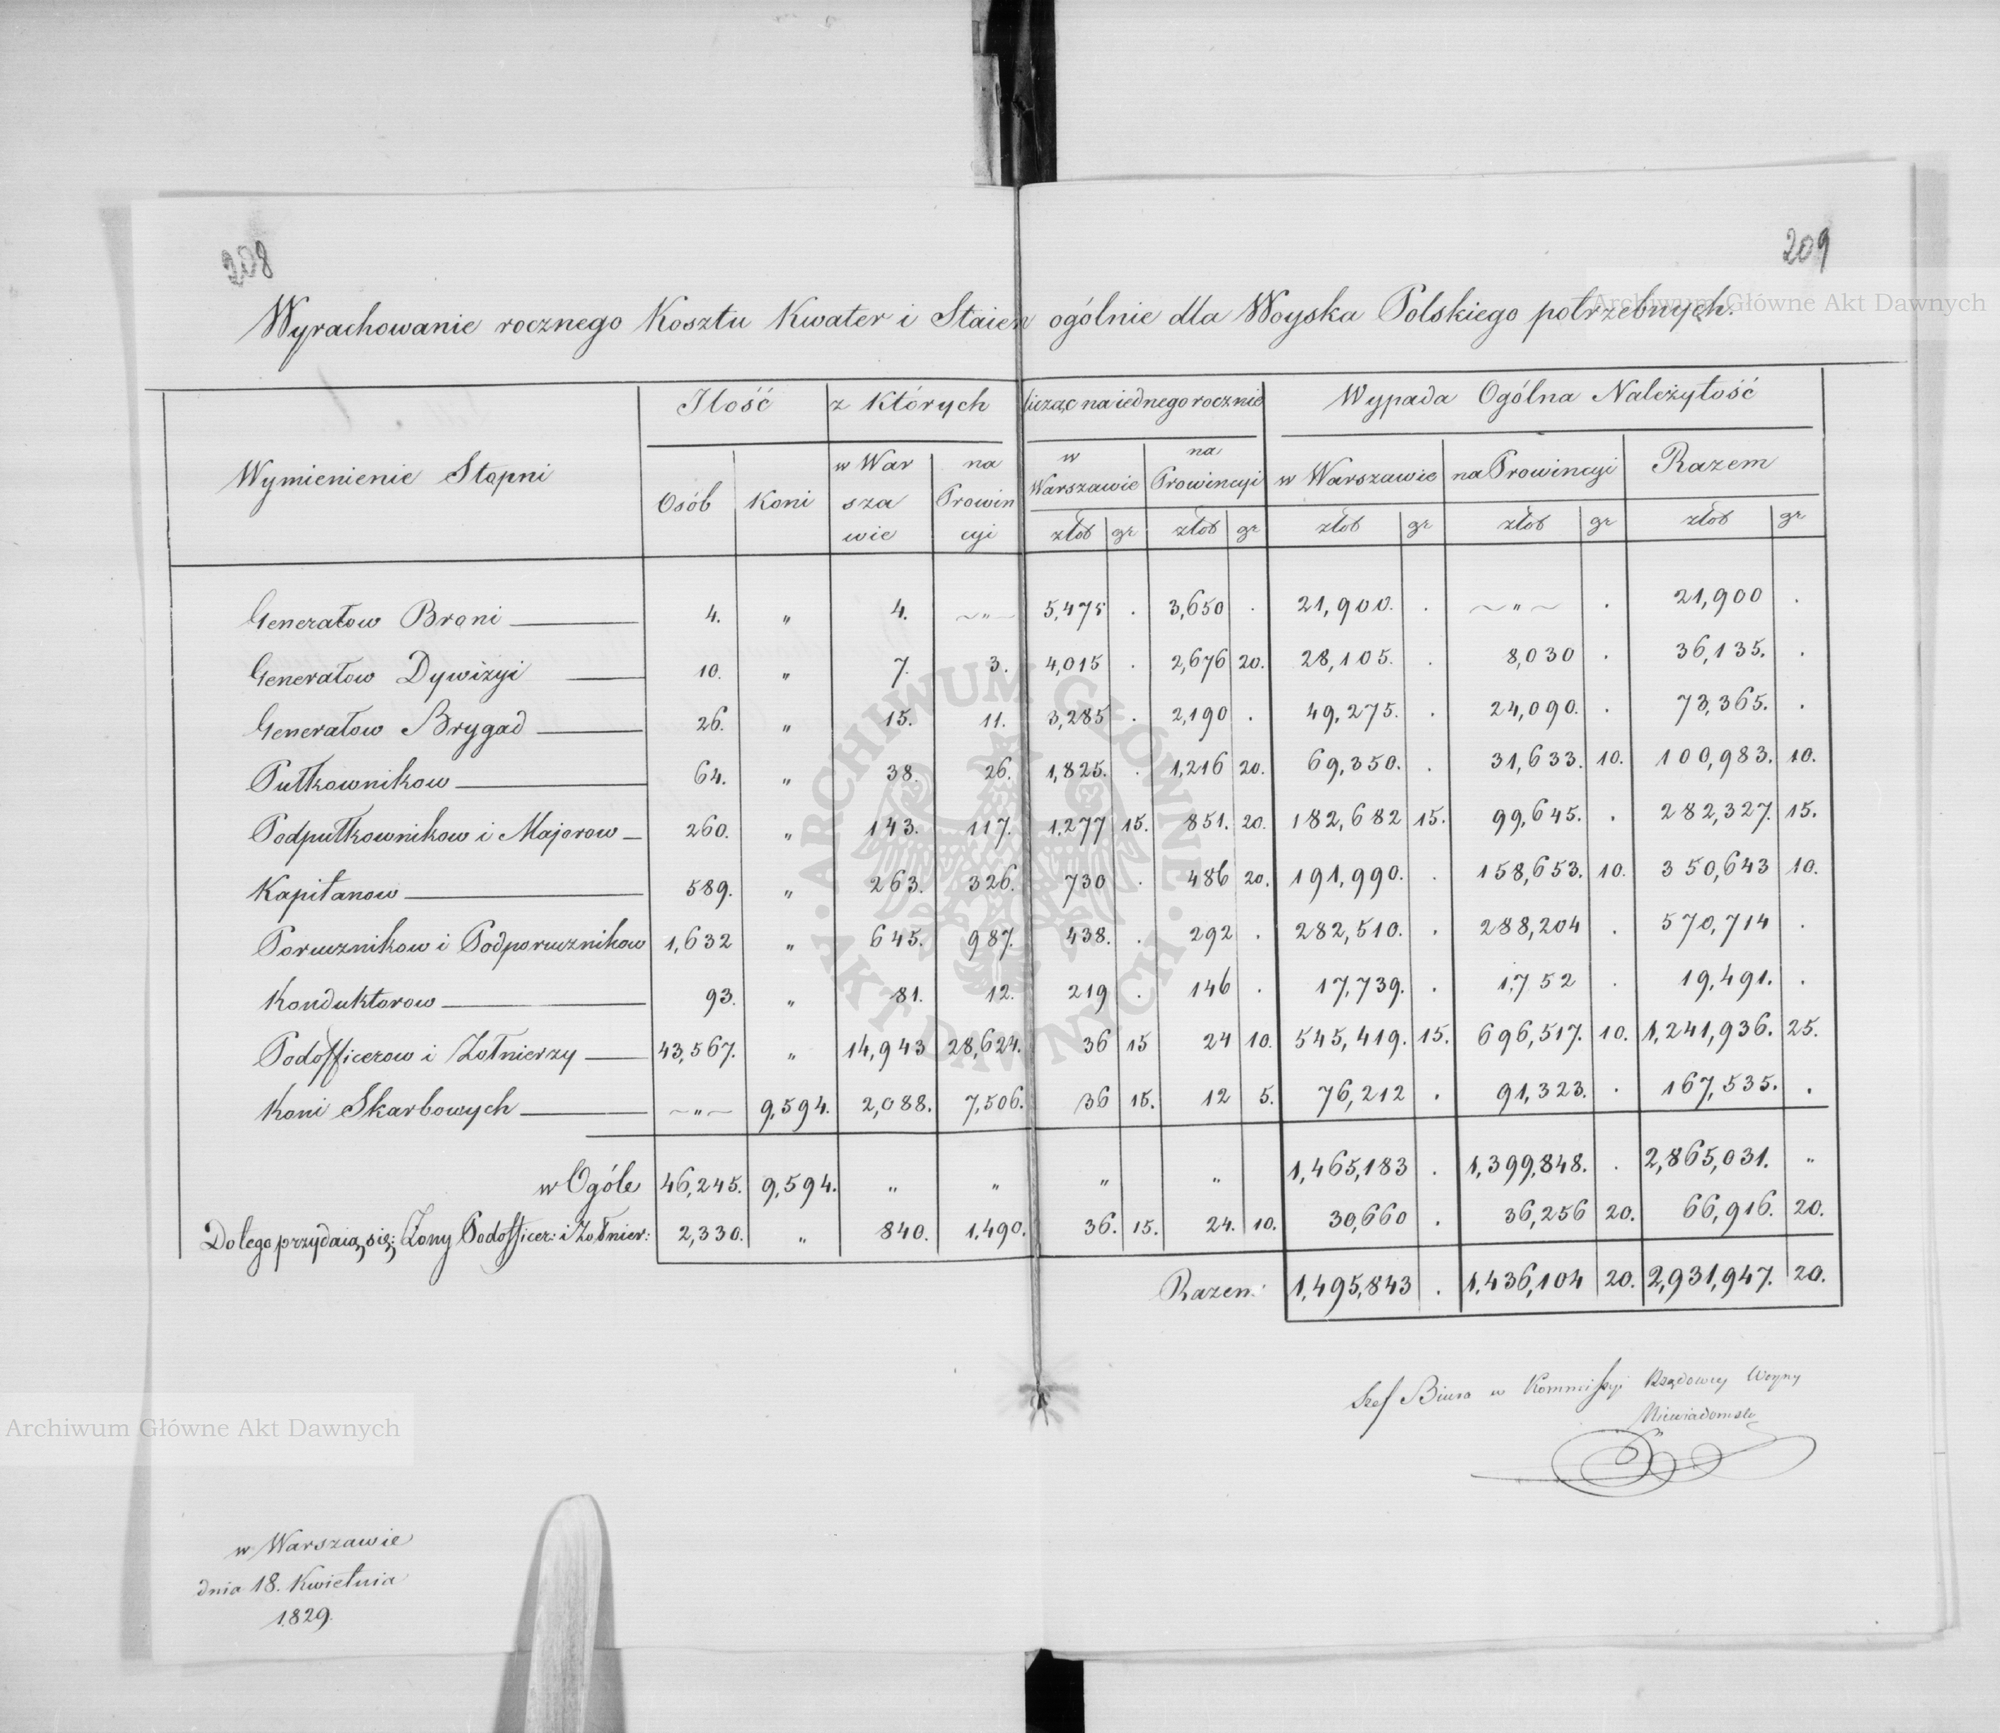 208
209
Wyrachowanie rocznego Kosztu Kwater i Staien ogólnie dla Woyska Polskiego potrzebnych.
Wymienienie Stopni | Ilość | z Których | licząc na iednego rocznie | Wypada Ogólna Należytość
Osób | Koni | w Warszawie | na Prowincyi | w Warszawie | na Prowincyi | w Warszawie | na Prowincyi | Razem
złot | gr | złot | gr | złot | gr | złot | gr | złot | gr
Generałow Broni | 4. | " | 4. | ~"~ | 5,475 | . | 3,650 | . | 21,900. | . | ~"~ | . | 21,900 | .
Generałow Dywizyi | 10. | " | 7. | 3. | 4,015 | . | 2,676 | 20. | 28,105. | . | 8,030 | . | 36,135. | .
Generałow Brygad | 26. | " | 15. | 11. | 3,285 | . | 2,190 | . | 49,275. | . | 24,090. | . | 73,365. | .
Pułkownikow | 64. | " | 38. | 26. | 1,825. | . | 1,216 | 20. | 69,350. | . | 31,633. | 10. | 100,983. | 10.
Podpułkownikow i Majorow | 260. | " | 143. | 117. | 1,277 | 15. | 851. | 20. | 182,682 | 15. | 99,645. | . | 282,327. | 15.
Kapitanow | 589. | " | 263. | 326. | 730 | . | 486 | 20. | 191,990. | . | 158,653. | 10. | 350,643 | 10.
Porucznikow i Podporucznikow | 1,632 | " | 645. | 987. | 438. | . | 292 | . | 282,510. | . | 288,204 | . | 570,714 | .
Konduktorow | 93. | " | 81. | 12. | 219 | . | 146 | . | 17,739. | . | 1,752 | . | 19,491. | .
Podofficerow i Żołnierzy | 43,567. | " | 14,943 | 28,624. | 36 | 15 | 24 | 10. | 545,419. | 15. | 696,517. | 10. | 1,241,936. | 25.
Koni Skarbowych | ~"~ | 9,594. | 2,088. | 7,506. | 36 | 15. | 12 | 5. | 76,212 | . | 91,323. | . | 167,535. | .
w Ogóle | 46,245. | 9,594. | " | " | " | " | 1,465,183 | . | 1,399,848. | . | 2,865,031. | "
Do tego przydaią się; Żony Podofficer: i Żołnier: | 2,330. | " | 840. | 1,490. | 36. | 15. | 24. | 10. | 30,660 | . | 36,256 | 20. | 66,916. | 20.
Razem | 1,495,843 | . | 1,436,104 | 20. | 2,931,947. | 20.
Szef Biura w Kommissyi Rządowey Woyny
Niewiadomski
w Warszawie
dnia 18. Kwietnia
1829.
Archiwum Główne Akt Dawnych
Archiwum Główne Akt Dawnych
ARCHIWUM GŁÓWNE · AKT DAWNYCH ·